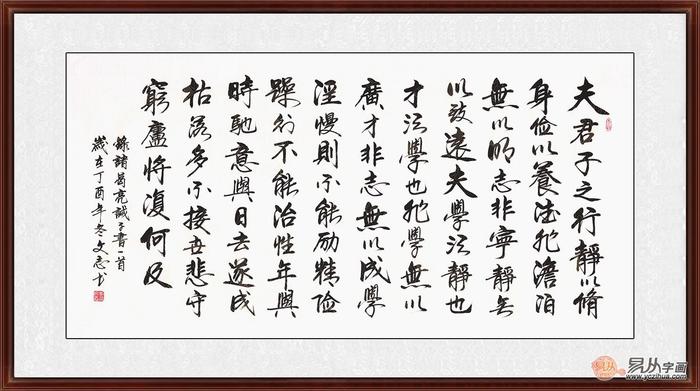 夫君子之行靜以脩
身儉以養德非澹泊
無以明志非寧靜無
以致遠夫學須靜也
才須學也非學無以
廣才非志無以成學
淫慢則不能励精險
躁則不能治性年與
時馳意與日去遂成
枯落多不接世悲守
窮廬將復何及
錄諸葛亮誡子書一首
歲在丁酉年冬文志书
易从字画
www.yczihua.com